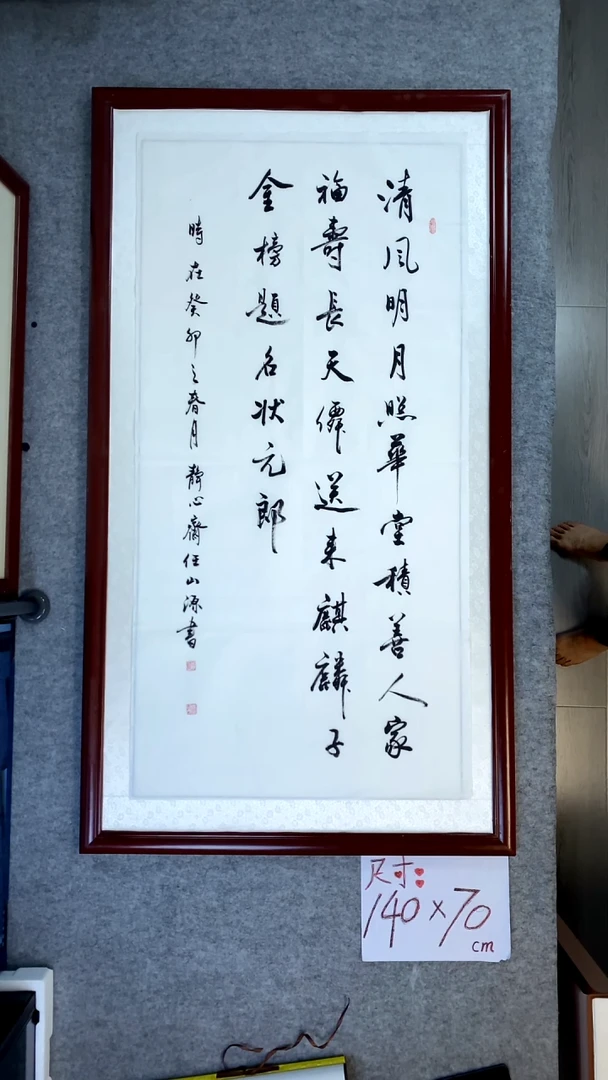 清風明月照華堂積善人家
福壽長天僊送来麒麟子
金榜題名状元郎
時在癸卯之春月靜心齋任山源書
尺寸:
140×70
cm